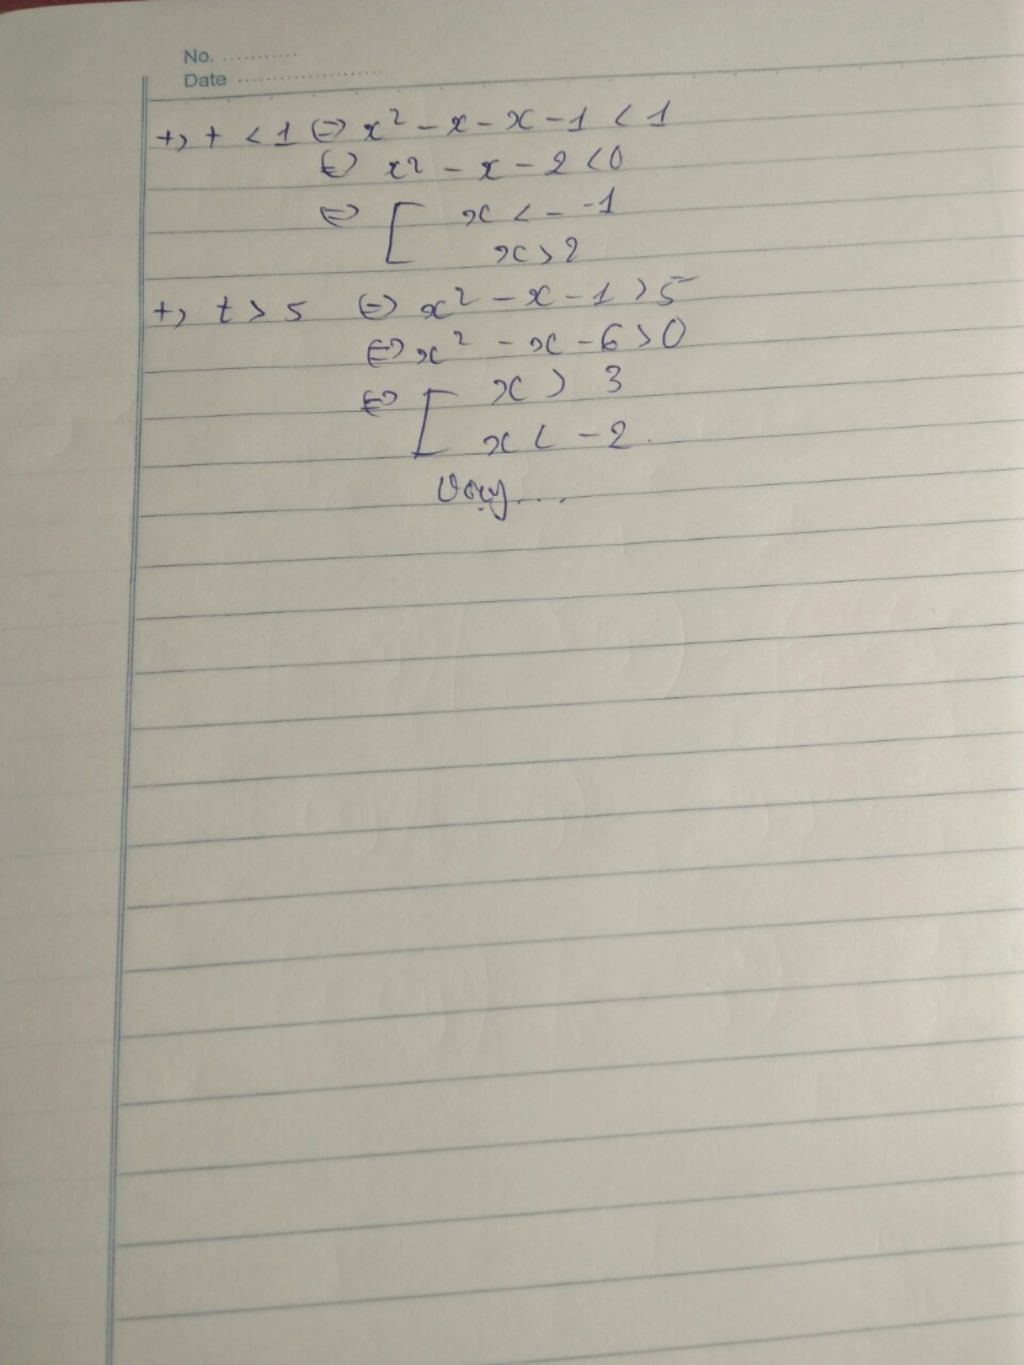 No. ..........
Date .....................
+, t < 1 ⇔ x² - x - x - 1 < 1
⇔ x² - x - 2 < 0
⇔ [ x < - -1
x > 2
+, t > 5 ⇔ x² - x - 1 > 5
⇔ x² - x - 6 > 0
⇔ [ x > 3
x < -2.
Vậy...